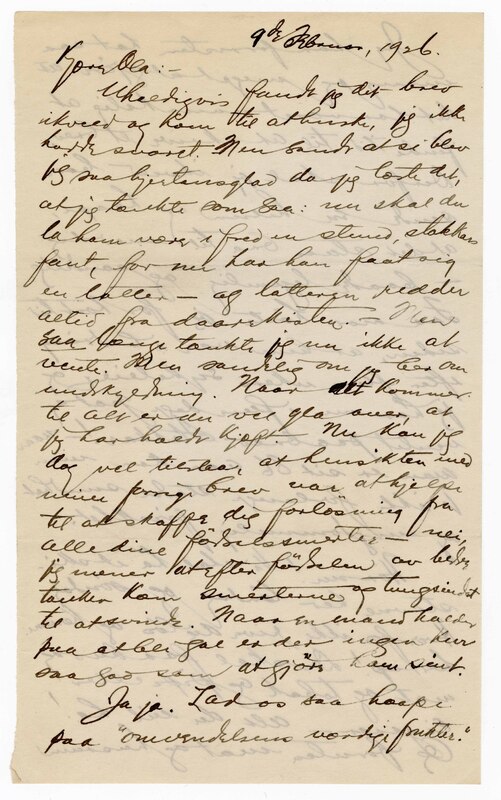 9de Februar, 1926.
Kjære Ola: -
Uheldigvis fandt jeg dit brev
ikveld og kom til at huske, jeg ikke
hadde svaret. Men sandt at si blev
jeg saa hjertensglad da jeg læste det,
at jeg tænkte som saa: nu skal du
la ham være i fred en stund, stakkars
fant, for nu har han faat sig
en latter - og latteren redder
altid fra daarekisten. - Men
saa længe tænkte jeg nu ikke at
vente. Men sandelig om jeg ber om
undskyldning. Naar alt kommer
til alt er du vel gla over, at
jeg har holdt kjæft - Nu kan jeg
dog vel tilstaa, at hensikten med
min forrige brev var at hjelpe
til at skaffe dig forløsning fra
alle dine fødselssmerter - nei,
jeg mener at efter fødselen av bedre
tanker kom smerterne og tungsindet
til at svinde. Naar en mand holder
paa at bli gal er der ingen kur
saa god som at gjøre ham sint.
Ja ja. Lad os saa haape
paa "omvendelsens værdige frukter."